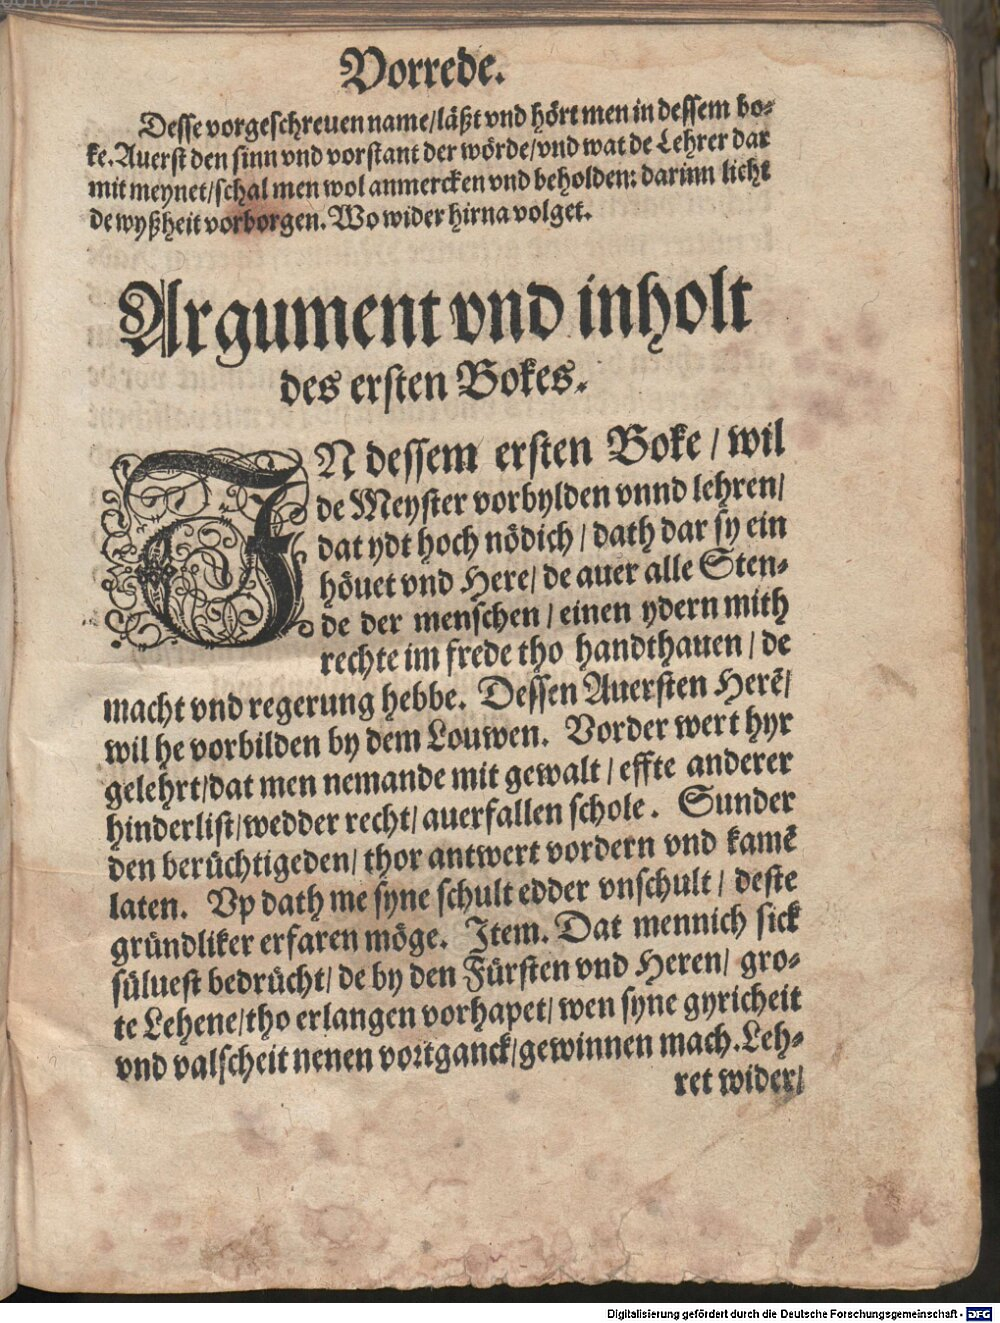 Vorrede.
Desse vorgeschreuen name/läßt vnd hört men in dessem bo⸗
ke. Auerst den sinn vnd vorstant der wörde/vnd wat de Lehrer dar
mit meynet/schal men wol anmercken vnd beholden: darinn licht
de wyßheit vorborgen. Wo wider hirna volget.
Argument vnd inholt
des ersten Bokes.
IN dessem ersten Boke / wil
de Meyster vorbylden vnnd lehren/
dat ydt hoch nödich / dath dar sy ein
höuet vnd Here/ de auer alle Sten⸗
de der menschen / einen ydern mith
rechte im frede tho handthauen / de
macht vnd regerung hebbe. Dessen Auersten Herē/
wil he vorbilden by dem Louwen. Vorder wert hyr
gelehrt/dat men nemande mit gewalt / effte anderer
hinderlist/wedder recht/ auerfallen schole. Sunder
den berüchtigeden/ thor antwert vordern vnd kamē
laten. Vp dath me syne schult edder vnschult / deste
gründliker erfaren möge. Item. Dat mennich sick
süluest bedrücht/ de by den Fürsten vnd Heren/ gro⸗
te Lehene/tho erlangen vorhapet/ wen syne gyricheit
vnd valscheit nenen vortganck/gewinnen mach. Leh⸗
ret wider/
Digitalisierung gefördert durch die Deutsche Forschungsgemeinschaft - DFG